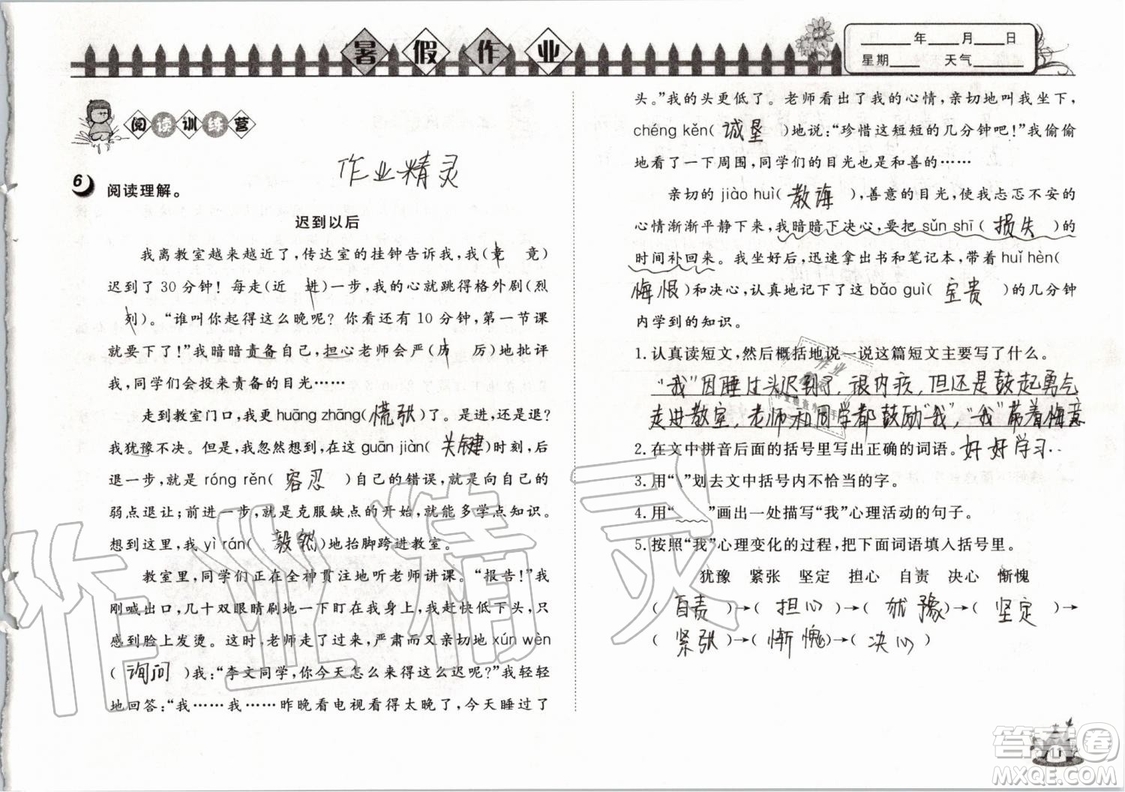 暑假作业
______年____月____日
星期____ 天气____
阅读训练营
作业精灵
6 阅读理解。
迟到以后
我离教室越来越近了，传达室的挂钟告诉我，我(竟 竟)
迟到了30分钟！每走(近 进)一步，我的心就跳得格外剧(烈
列)。“谁叫你起得这么晚呢？你看还有10分钟，第一节课
就要下了！”我暗暗责备自己，担心老师会严(历 厉)地批评
我，同学们会投来责备的目光……
走到教室门口，我更huāng zhāng(慌张)了。是进，还是退？
我犹豫不决。但是，在这guān jiàn(关键)时刻，一想到自己的
退却，就是róng rěn(容忍)自己的错误，就是向自己的
弱点退让；前进，就是克服缺点的开始，就能多学点知识。
想到这里，我yì rán(毅然)地抬脚跨进教室。
教室里，同学们正在全神贯注地听老师讲课。“报告！”我
刚喊出口，几十双眼睛刷地一下盯在我身上，我
感到脸上发烫。这时，老师走了过来，严肃而又亲切地xún wèn
(询问)我：“李文同学，你今天怎么来这么迟呢？”我轻轻
地回答：“我……我……昨晚看电视看得太晚了，今天睡过了
头。”我的头更低了。老师看出了我的心情，亲切地叫我坐下，
chéng kěn(诚垦)地说：“珍惜这短短的几分钟吧！”我偷偷
地看了一下周围，同学们的目光也是和善的。
亲切的jiào huì(教诲)，善意的目光，使我忐忑不安的
心情渐渐平静下来，我暗暗下决心，要把sǔn shī(损失)的
时间补回来。我坐好后，迅速拿出书和笔记本，带着huǐ hèn(
悔恨)和决心，认真地记下了这bǎo guì(宝贵)的几分钟
内学到的知识。
1. 认真读短文，然后概括地说一说这篇短文主要写了什么。
“我”因睡过头迟到了，很内疚，但还是鼓起勇气
走进教室，老师和同学都鼓励“我”，“我”带着悔意
好好学习.
2. 在文中拼音后面的括号里写出正确的词语。
3. 用“\”划去文中括号内不恰当的字。
4. 用“﹏﹏”画出一处描写“我”心理活动的句子。
5. 按照“我”心理变化的过程，把下面词语填入括号里。
犹豫 紧张 坚定 担心 自责 决心 惭愧
(自责)→(担心)→(犹豫)→(坚定)→
(紧张)→(惭愧)→(决心)
作业精灵
答案圈
MXQE.COM
11